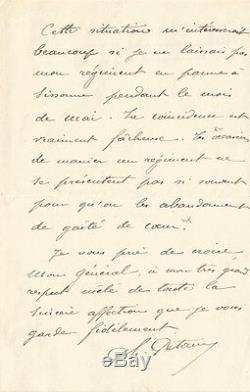 Cette situation m'intéresserait
beaucoup si je ne laissais pas
mon régiment en panne à
Sissonne pendant le mois
de mai. La coïncidence est
vraiment fâcheuse. Les occasions
de manier un régiment ne
se présentent pas si souvent
pour qu'on les abandonne
de gaîté de cœur.
Je vous prie de croire
Mon général, à mon très grand
respect mêlé de toute la
sincère affection que je vous
garde fidèlement.
Ph. Pétain
ebay